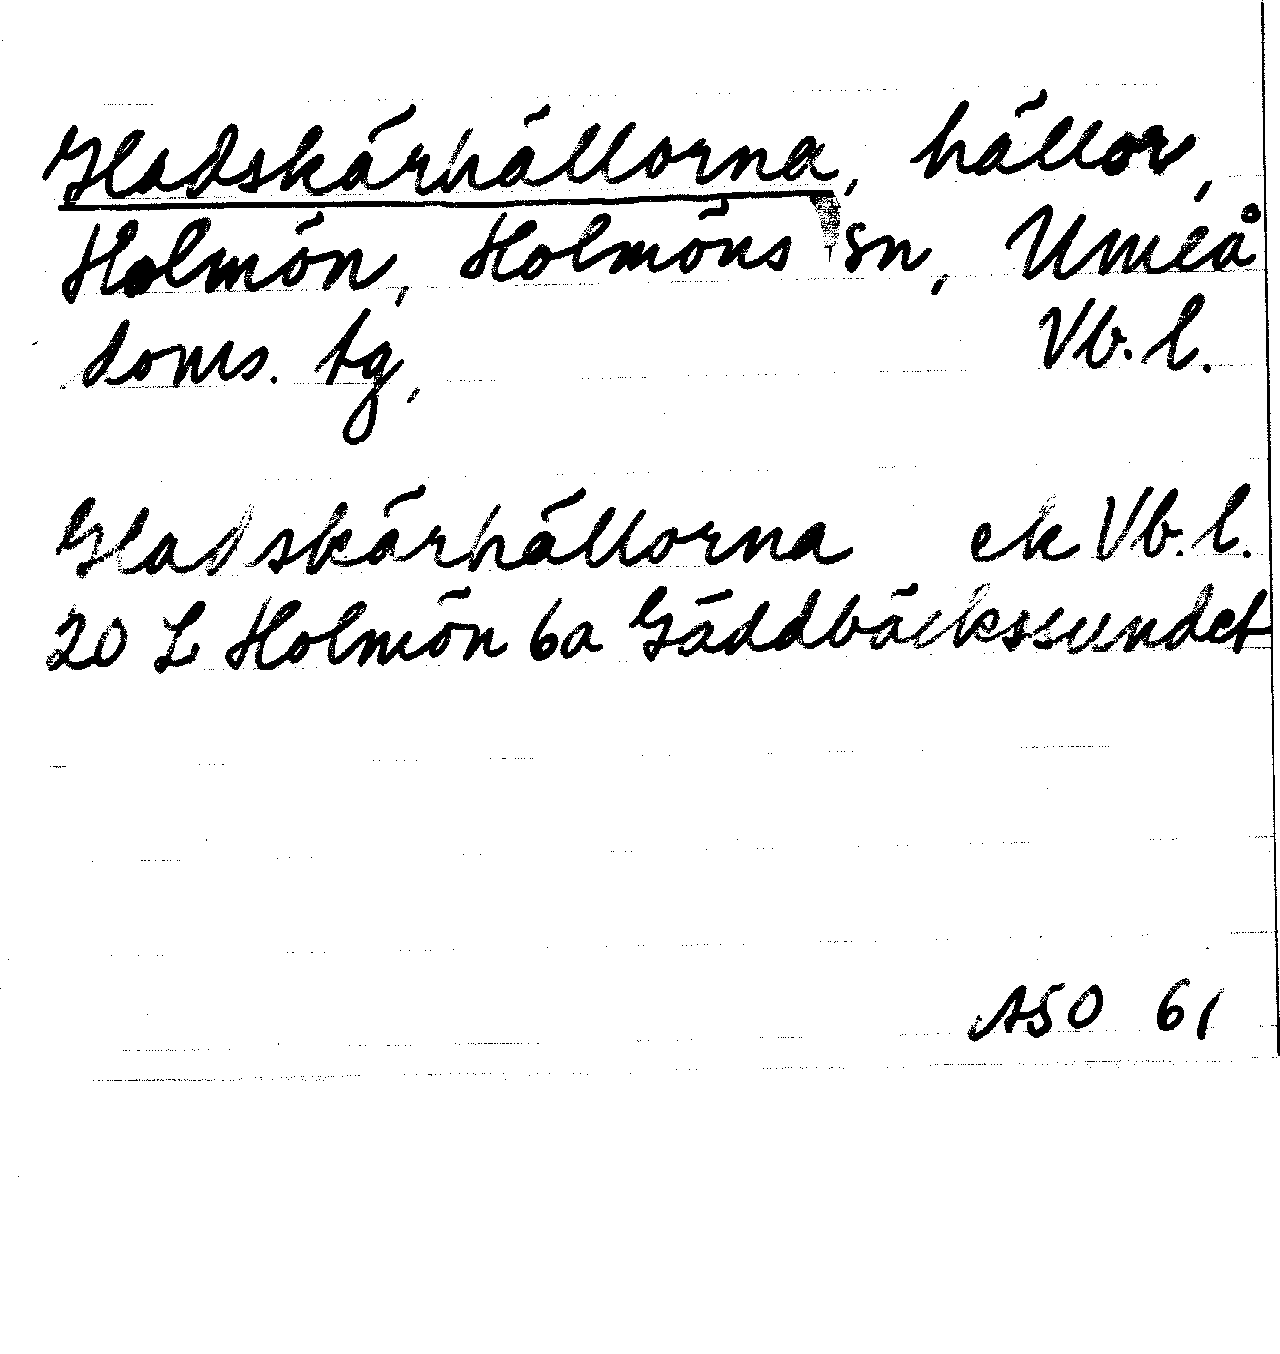 Gladskärhällorna, hällor,
Holmön, Holmöns sn, Umeå
doms. tg, Vb. l.
Gladskärhällorna ek Vb. l.
20 L Holmön 6a Gäddbäckssundet
ASO 61